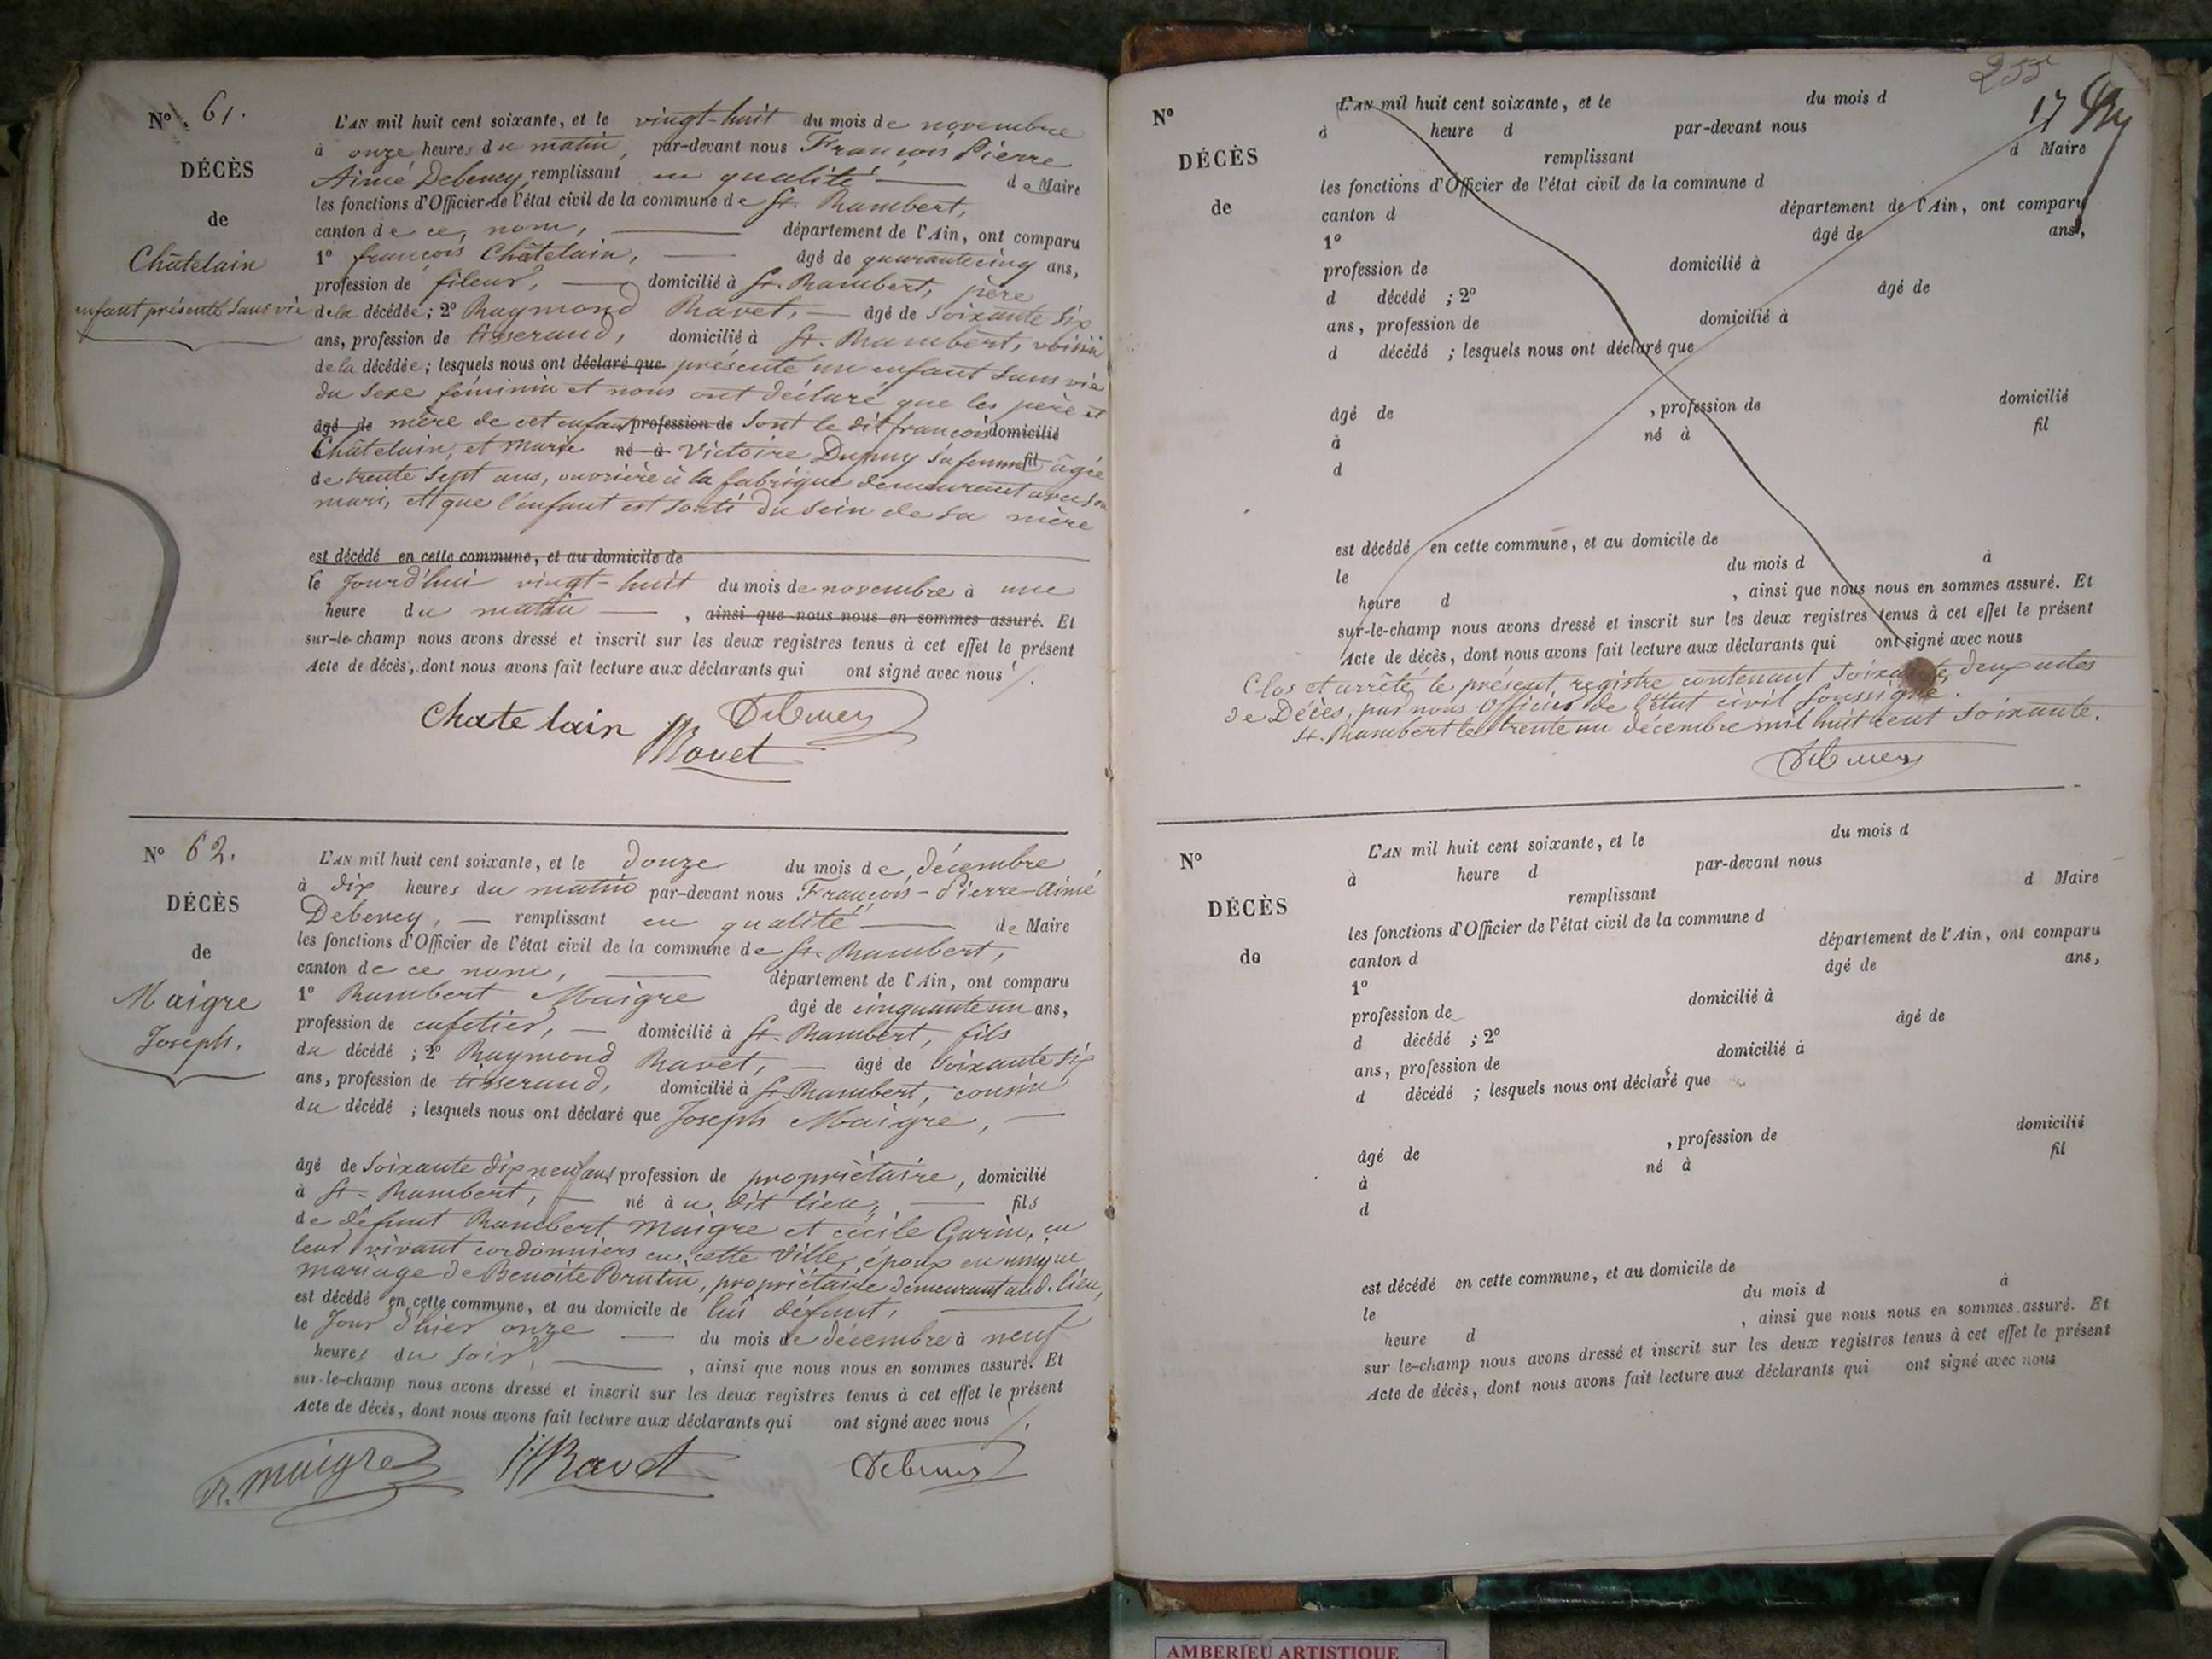 N° 61.
DÉCÈS
de
Châtelain
enfant présenté sans vie
L'AN mil huit cent soixante, et le vingt-huit du mois de novembre
à onze heures du matin, par-devant nous François Pierre
Aimé Debeney, remplissant en qualité de Maire
les fonctions d'Officier de l'état civil de la commune de St. Rambert,
canton de ce nom, département de l'Ain, ont comparu
1° françois Châtelain, âgé de quarante cinq ans,
profession de fileur, domicilié à St. Rambert, père
de la décédée; 2° Raymond Ravet, âgé de soixante six
ans, profession de tisserand, domicilié à St. Rambert, voisin
de la décédée; lesquels nous ont déclaré que présenté un enfant sans vie
du sexe féminin et nous ont déclaré que les père et
âgé de mère de cet enfant profession de sont le dit françois domicilié
Châtelain, et Marie né à Victoire Dupuy sa femme fil âgée
de trente sept ans, ouvrière à la fabrique demeurant avec son
mari, et que l'enfant est sorti du sein de sa mère
est décédé en cette commune, et au domicile de
le Jourd'hui vingt-huit du mois de novembre à une
heure du matin, ainsi que nous nous en sommes assuré. Et
sur-le-champ nous avons dressé et inscrit sur les deux registres tenus à cet effet le présent
Acte de décès, dont nous avons fait lecture aux déclarants qui ont signé avec nous
Chatelain Debeney
Ravet
N° 62.
DÉCÈS
de
Maigre
Joseph.
L'AN mil huit cent soixante, et le douze du mois de décembre
à dix heures du matin par-devant nous François-Pierre-Aimé
Debeney, remplissant en qualité de Maire
les fonctions d'Officier de l'état civil de la commune de St. Rambert,
canton de ce nom, département de l'Ain, ont comparu
1° Rambert Maigre âgé de cinquante un ans,
profession de cafetier, domicilié à St. Rambert, fils
du décédé; 2° Raymond Ravet, âgé de soixante six
ans, profession de tisserand, domicilié à St. Rambert, cousin
du décédé; lesquels nous ont déclaré que Joseph Maigre,
âgé de soixante dix neuf ans profession de propriétaire, domicilié
à St. Rambert, né à u dit lieu, fils
de défunt Rambert Maigre et cécile Garin, en
leur vivant cordonniers en cette ville, époux en unique
mariage de Benoite propriétaire demeurant aud. lieu,
est décédé en cette commune, et au domicile de lui défunt,
le Jour d'hier onze du mois de décembre à neuf
heures du soir, ainsi que nous nous en sommes assuré. Et
sur-le-champ nous avons dressé et inscrit sur les deux registres tenus à cet effet le présent
Acte de décès, dont nous avons fait lecture aux déclarants qui ont signé avec nous
R. Maigre Ravet Debeney
255
17
N°
DÉCÈS
de
L'AN mil huit cent soixante, et le du mois d
à heure d par-devant nous
remplissant d Maire
les fonctions d'Officier de l'état civil de la commune d
canton d département de l'Ain, ont comparu
1° âgé de ans,
profession de domicilié à
d décédé ; 2° âgé de
ans, profession de domicilié à
d décédé ; lesquels nous ont déclaré que
âgé de , profession de domicilié
à né à fil
d
est décédé en cette commune, et au domicile de
le du mois d à
heure d , ainsi que nous nous en sommes assuré. Et
sur-le-champ nous avons dressé et inscrit sur les deux registres tenus à cet effet le présent
Acte de décès, dont nous avons fait lecture aux déclarants qui ont signé avec nous
Clos et arrêté le présent registre contenant soixante deux actes
de Décès, par nous Officier de l'état civil soussigné.
St. Rambert le trente un décembre mil huit cent soixante.
Debeney
N°
DÉCÈS
de
L'AN mil huit cent soixante, et le du mois d
à heure d par-devant nous
remplissant d Maire
les fonctions d'Officier de l'état civil de la commune d
canton d département de l'Ain, ont comparu
1° âgé de ans,
profession de domicilié à
d décédé ; 2° âgé de
ans, profession de domicilié à
d décédé ; lesquels nous ont déclaré que
âgé de , profession de domicilié
à né à fil
d
est décédé en cette commune, et au domicile de
le du mois d à
heure d , ainsi que nous nous en sommes assuré. Et
sur le-champ nous avons dressé et inscrit sur les deux registres tenus à cet effet le présent
Acte de décès, dont nous avons fait lecture aux déclarants qui ont signé avec nous
AMBERIEU ARTISTIQUE